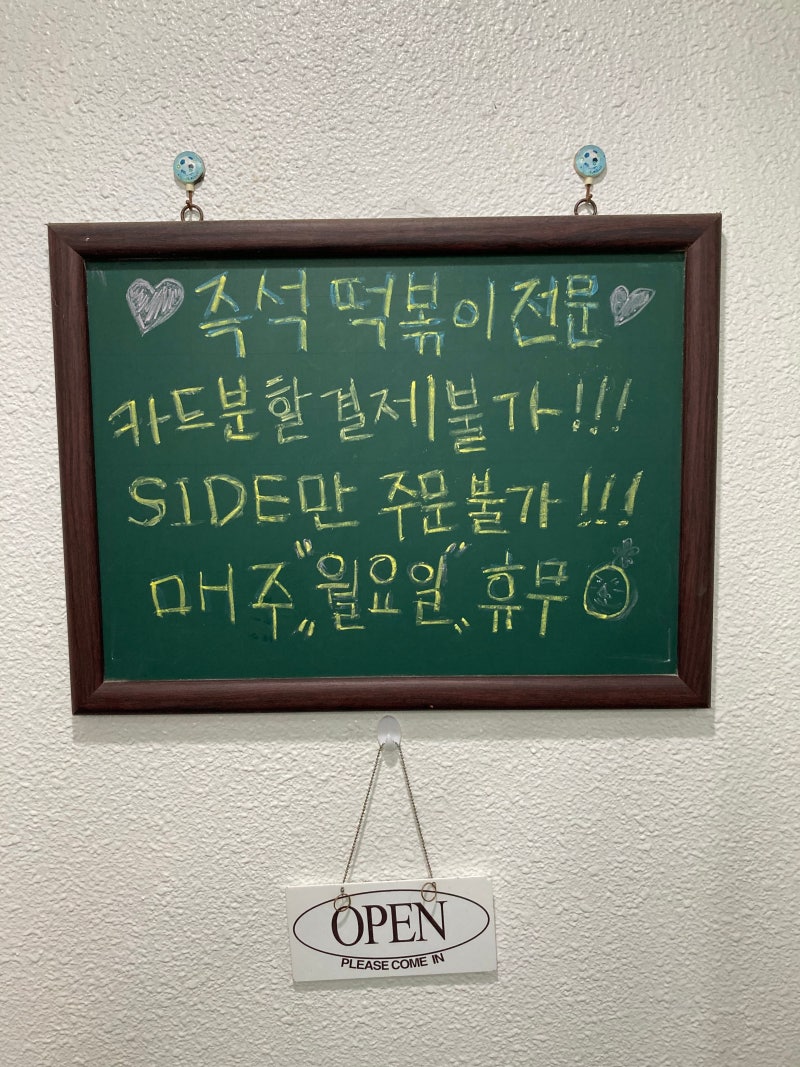 즉석 떡볶이 전문
카드분할결제불가!!!
SIDE만 주문불가!!!
매주 "월요일" 휴무
OPEN
PLEASE COME IN